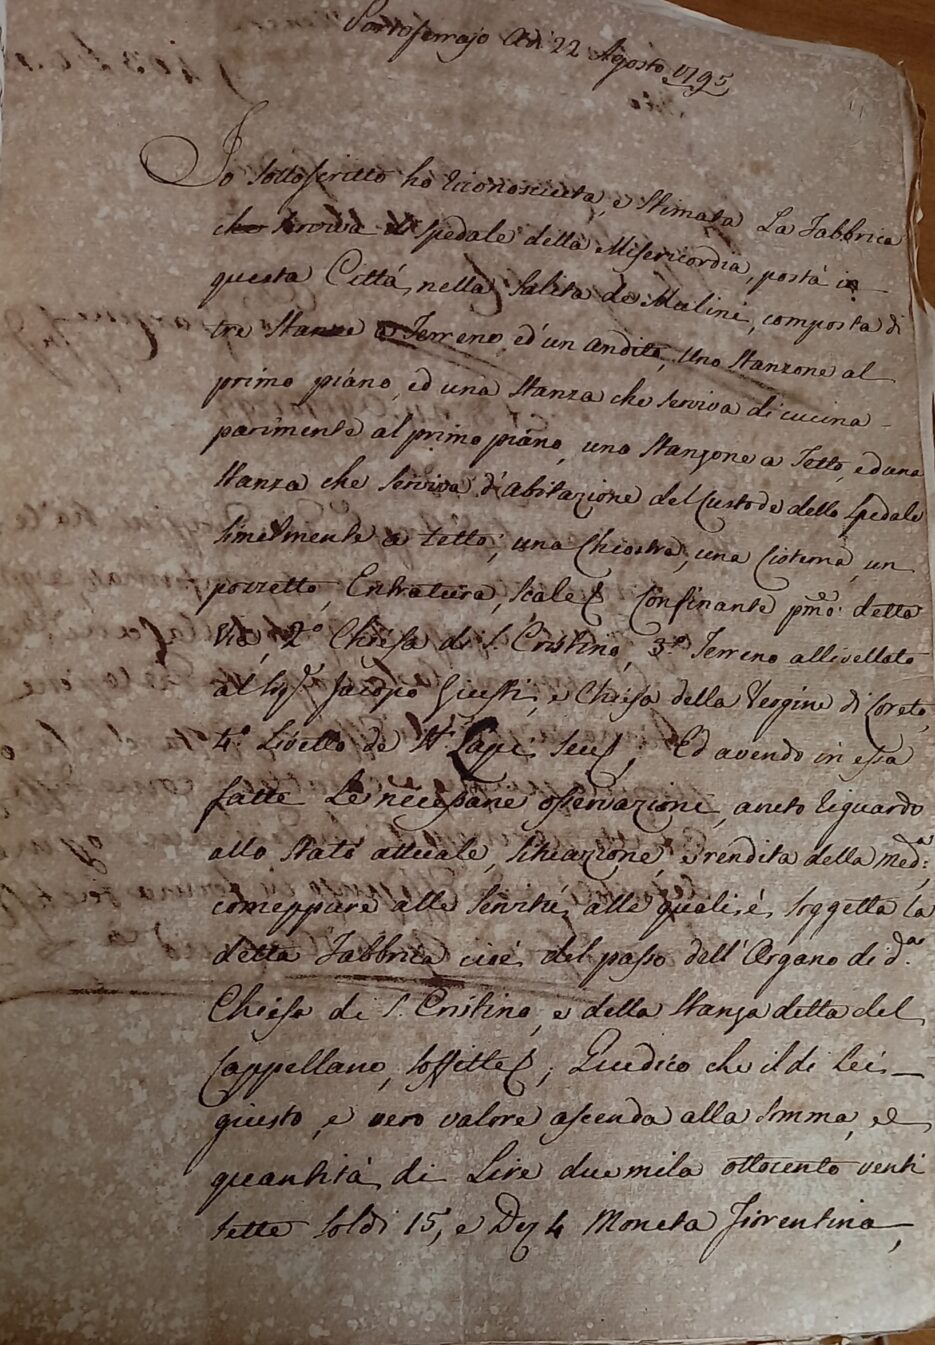 Portoferrajo Adì 22 Agosto 1795
Io Sottoscritto hò riconosciuta, e Stimata La Fabbrica
che Serviva di Spedale della Misericordia, postà in
questa Città, nella Salita de Mulini, composta di
tre Stanze a Terreno, ed'un Andito, Uno Stanzone al
primo piano, ed una Stanza che Serviva di cucina
parimente al primo piano, uno Stanzone a Tetto, ed una
Stanza che Serviva d'abitazione del Custode dello Spedale
similmente a tetto; una Chiostra, una Cisterna, un
pozzetto, Entratura, Scale & Confinante pmo: detta
Via, 2.° Chiesa di S. Cristino, 3.° Terreno allivellato
al Sigr. Jacopo Giusti, e Chiesa della Vergine di Loreto,
4.° Livello de Lapi, Ed avendo in essa
fatte Le necessarie osservazione, avuto riguardo
allo Stato attuale, situazione, e rendita della meda:,
comeppure alle Servitù, alle quali è, Soggetta La
detta Fabbrica cioè, del passo dell'Organo di da.
Chiesa di S. Cristino, e della Stanza detta del
Cappellano, Soffitte &; Giudico che il di Lei
giusto, e vero valore ascenda alla Somma, e
quantità di Lire duemila ottocento venti
sette Soldi 15, e D 4 Moneta Fiorentina,